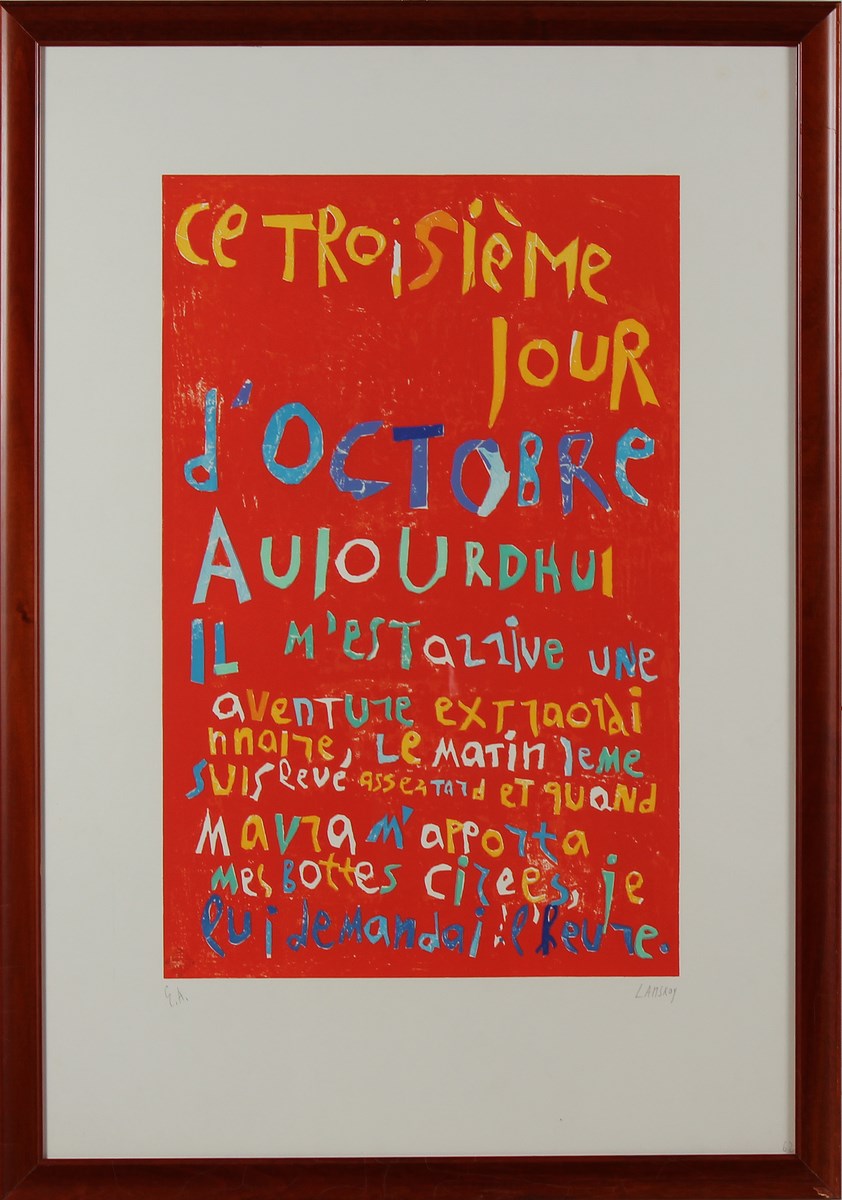 Ce TROisième
JOUR
d'OCTOBRe
AUJOURDHUI
IL m'esT arrive UNe
aventure extraordi
nnaire, Le matin jeme
suis levé assez tard et quand
Mavra m'apporta
mes Bottes cirees, je
lui demandai l'heure.
E.A. LANSKOY